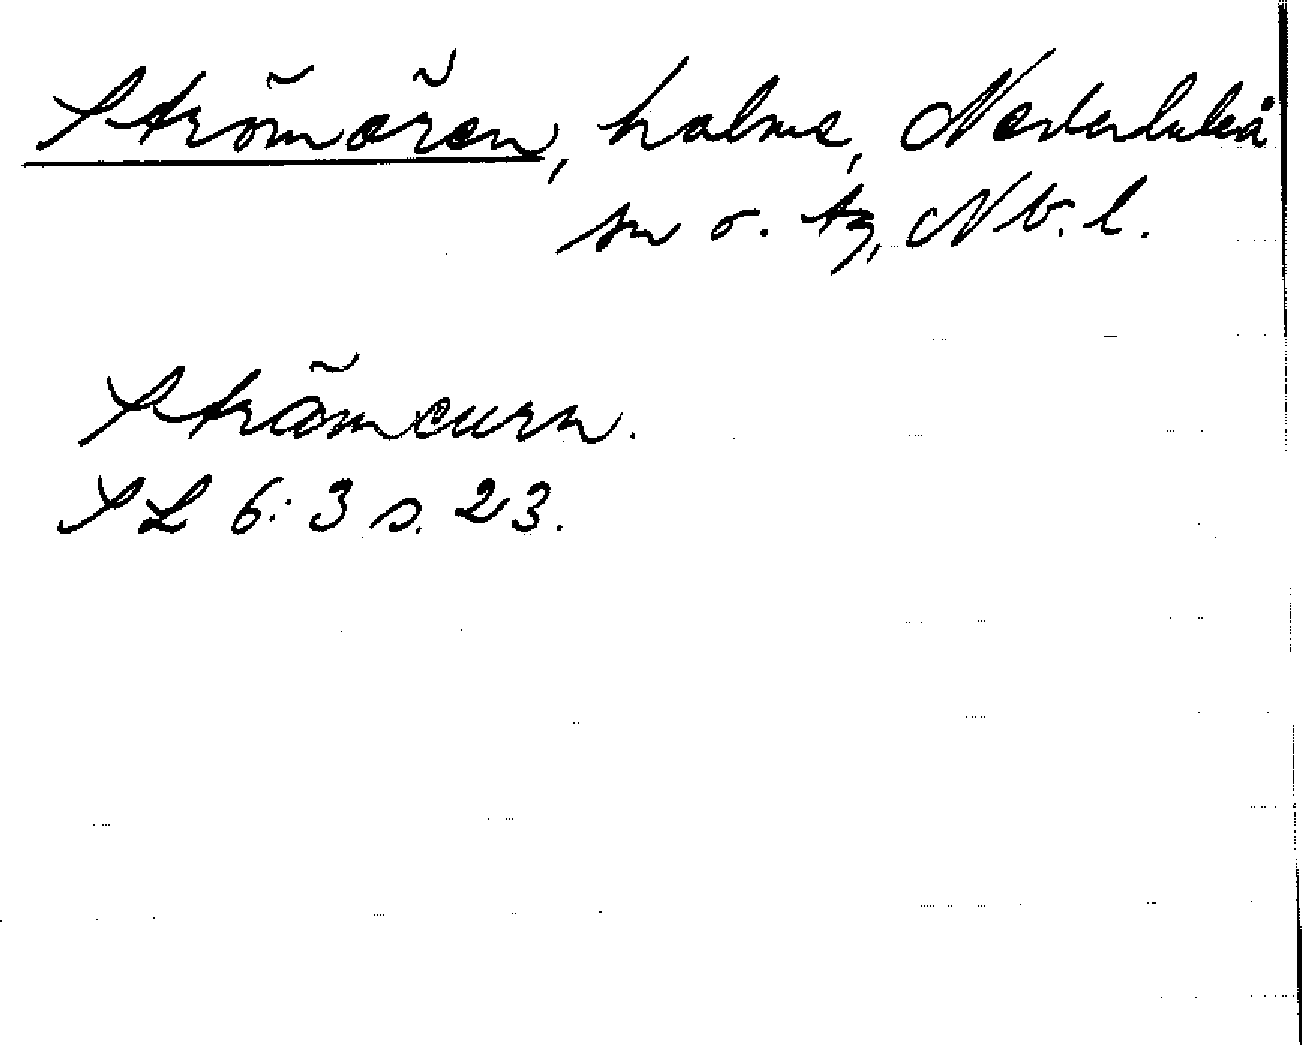 Strömören, holme, Nederluleå
sn o. tg, Nb. l.
Strömcurn.
SL 6:3 s. 23.